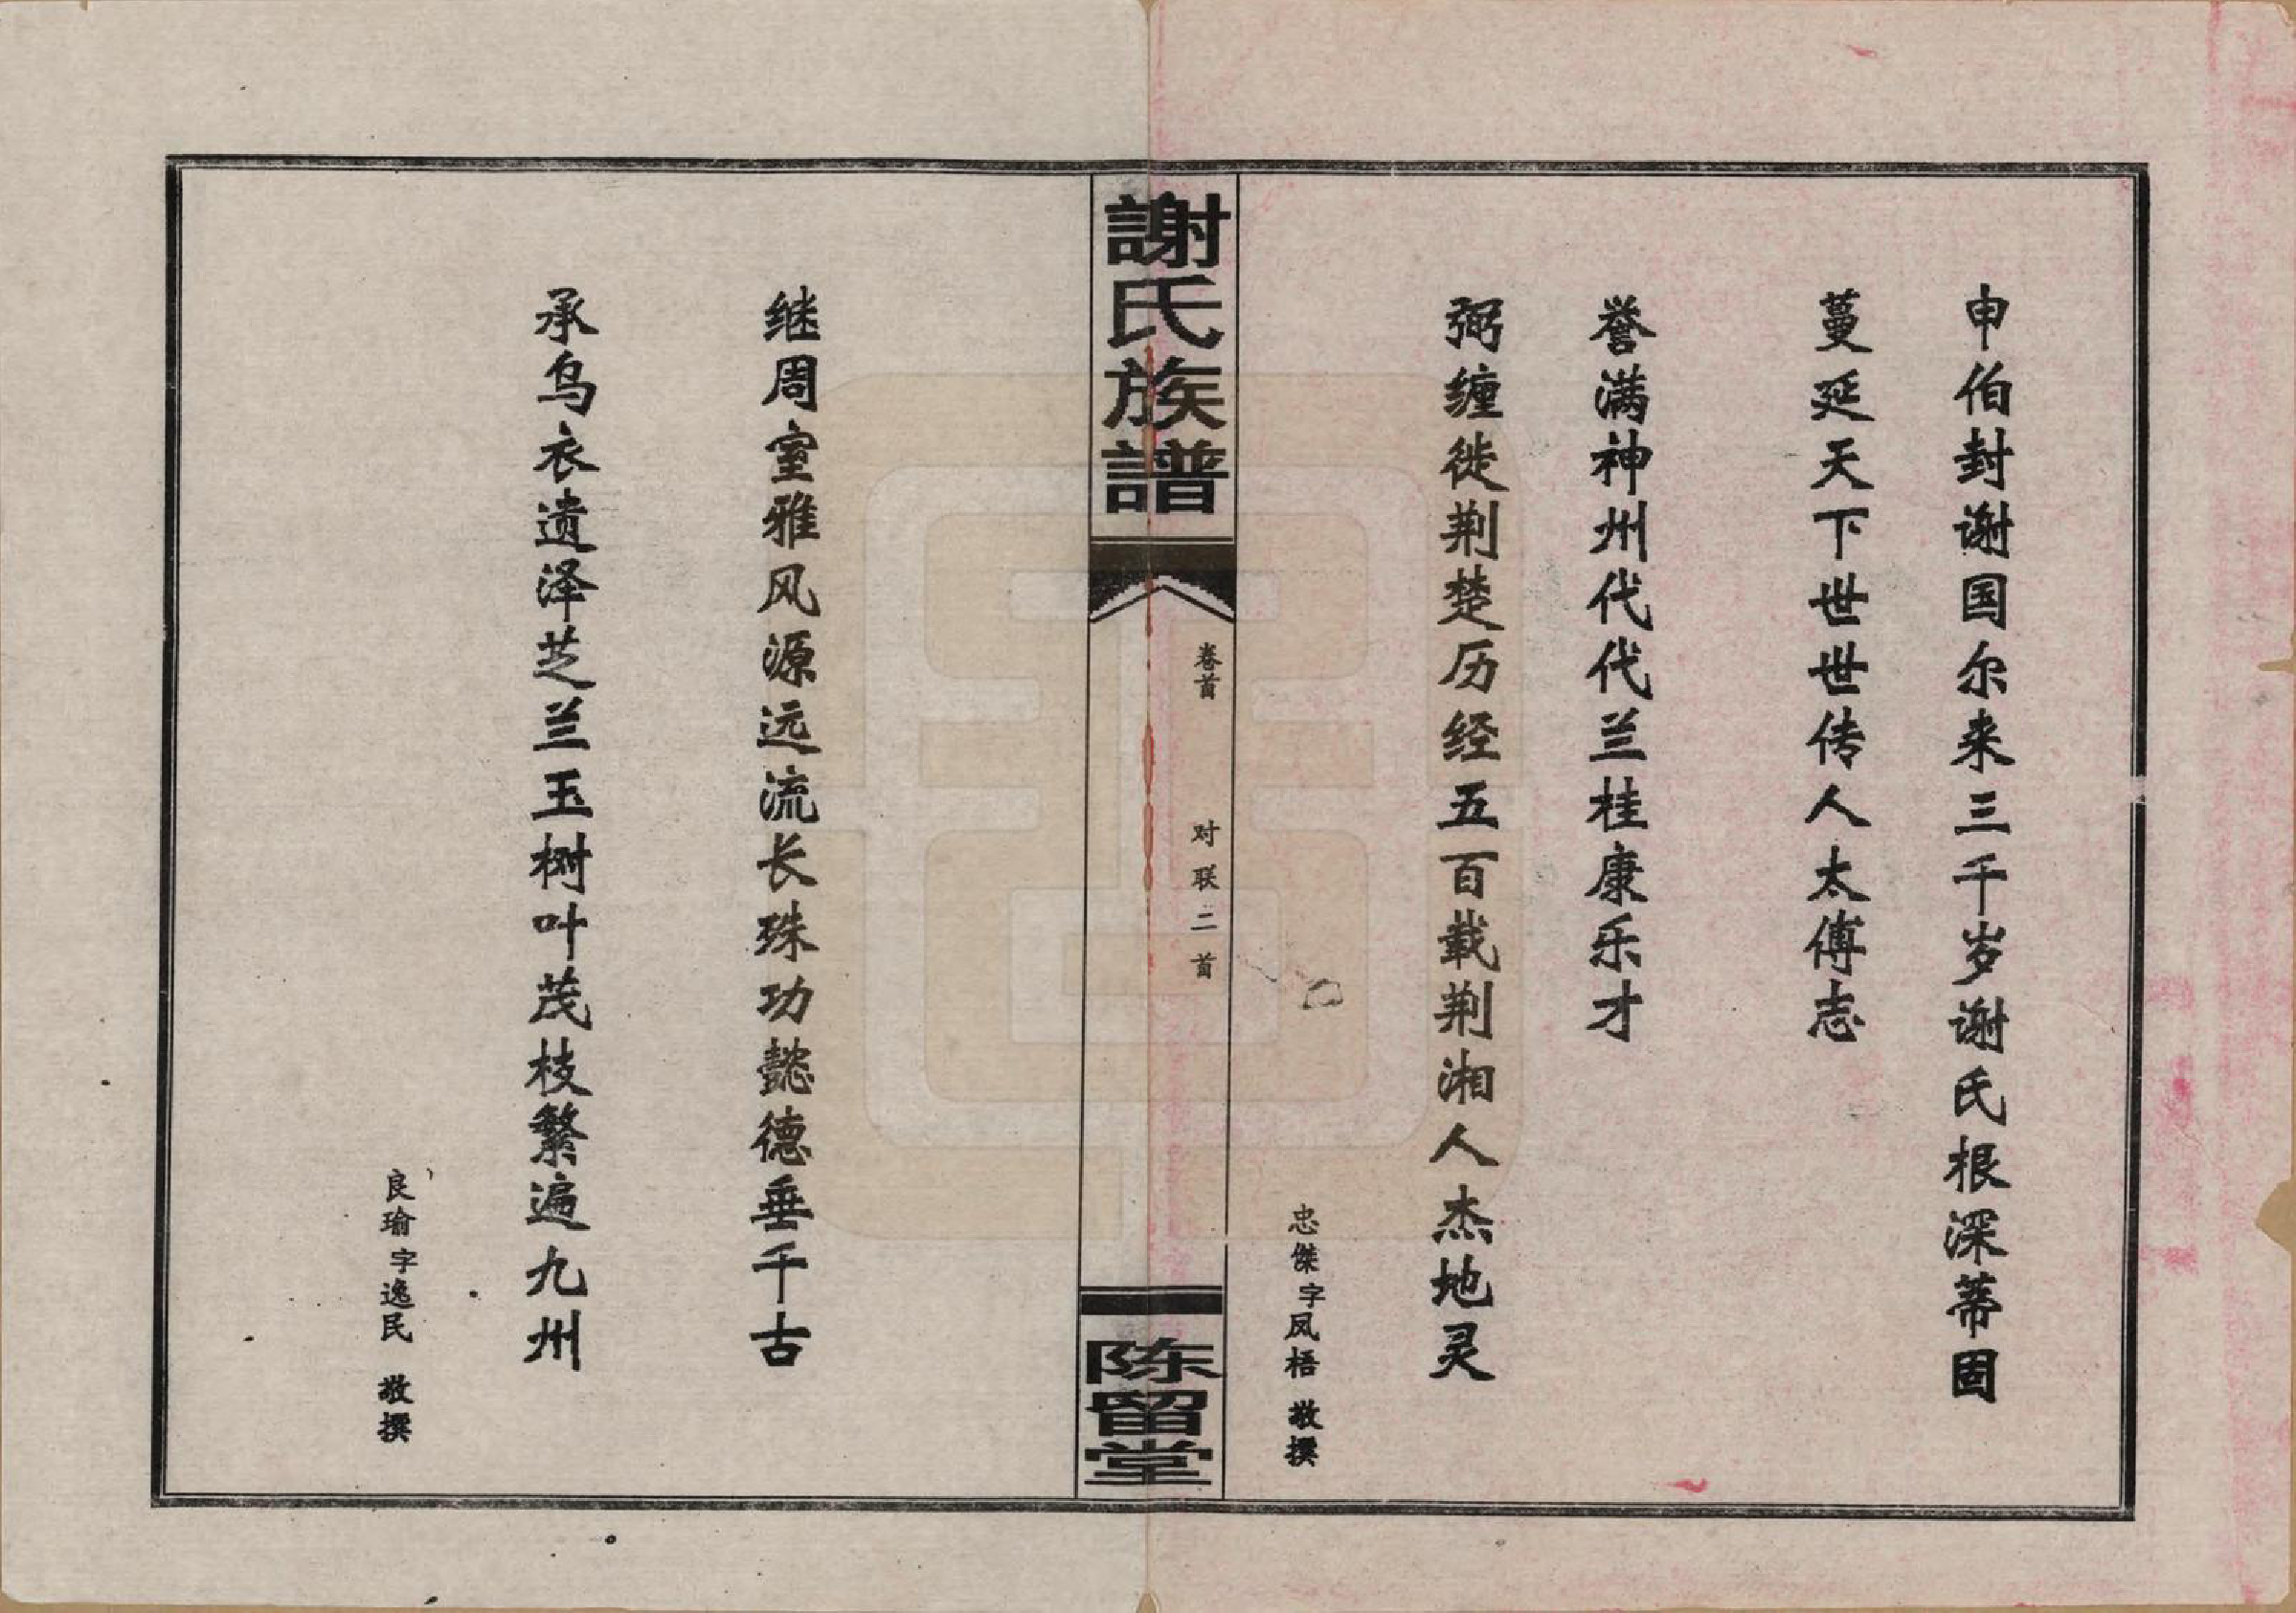 申伯封谢国尔来三千岁谢氏根深蒂固
蔓延天下世世传人太傅志
誉满神州代代兰桂康乐才
弼缠徙荆楚历经五百载荆湘人杰地灵
忠傑字凤梧 敬撰
謝氏族譜
卷首
对联二首
陈留堂
继周室雅风源远流长殊功懿德垂千古
承乌衣遗泽芝兰玉树叶茂枝繁遍九州
良瑜字逸民 敬撰